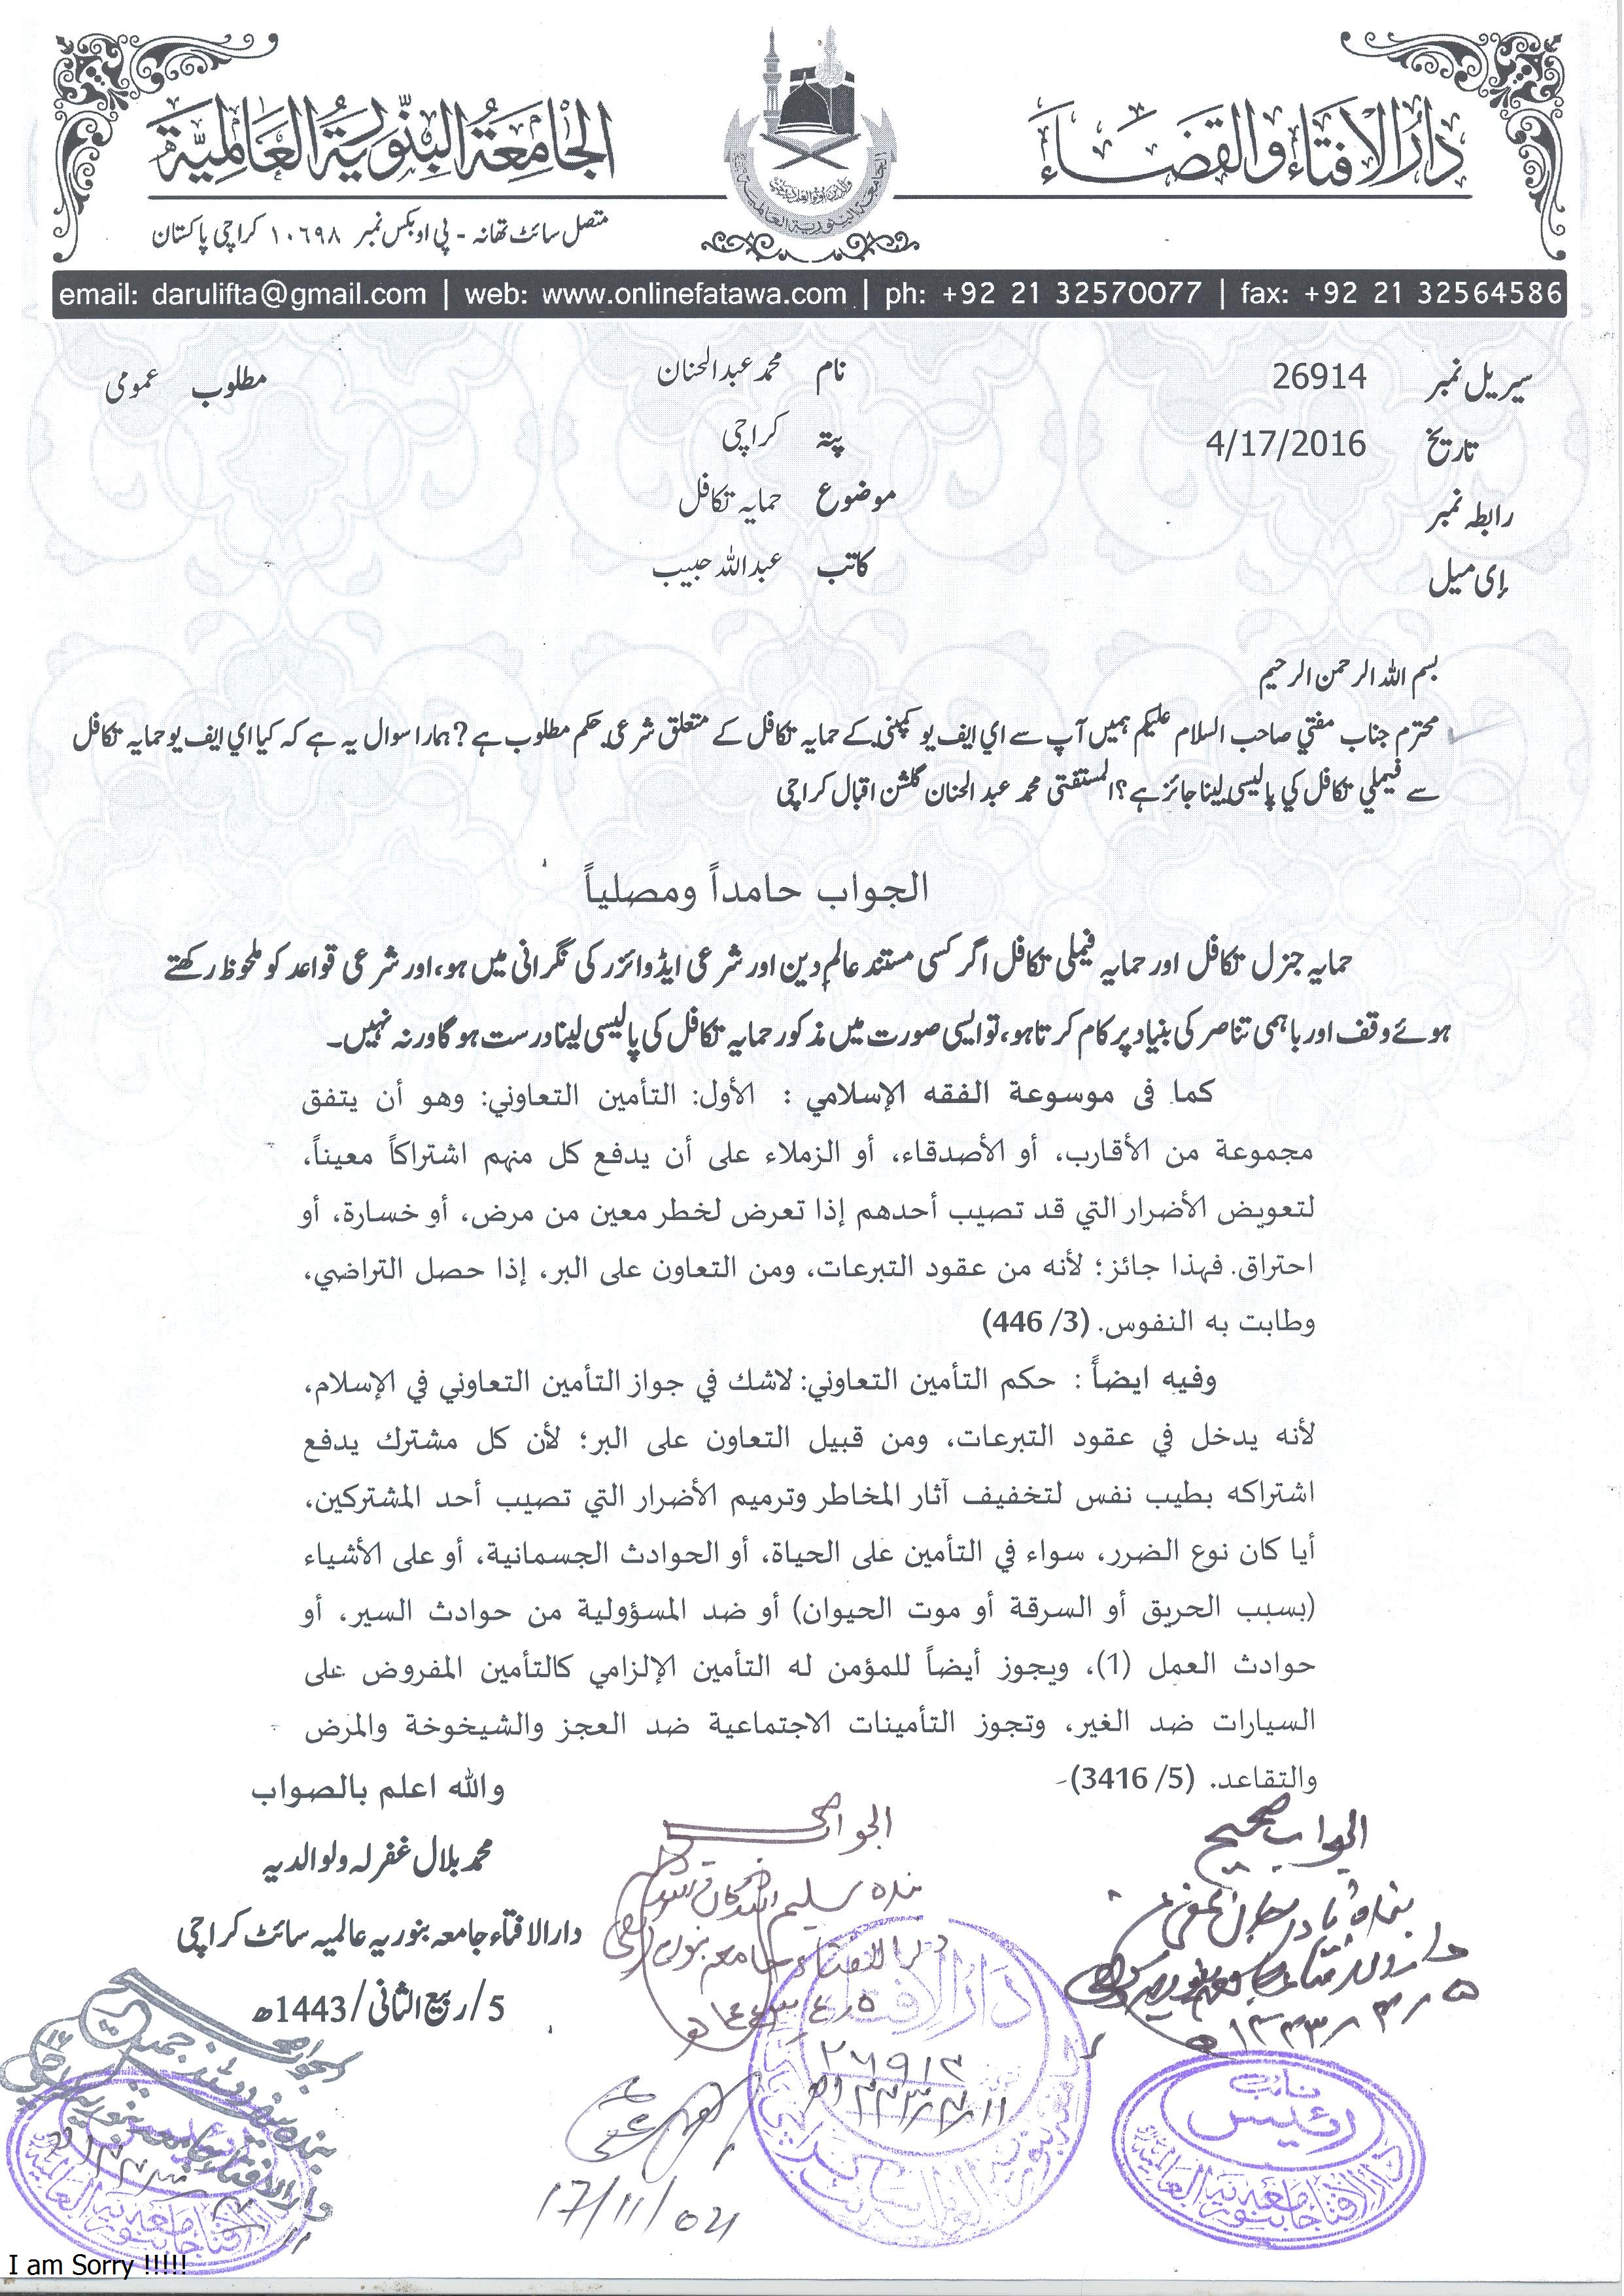 دارُ الافتاء والقضاء
الجامعة البنّوریة العالمیّة
متصل سائٹ تھانہ - پی او بکس نمبر ۱۰٦۹۸ کراچی پاکستان
email: darulifta@gmail.com | web: www.onlinefatawa.com | ph: +92 21 32570077 | fax: +92 21 32564586
سیریل نمبر 26914 نام محمد عبدالحنان مطلوب عمومی
تاریخ 4/17/2016 پتہ کراچی
رابطہ نمبر موضوع حمایہ تکافل
ای میل کاتب عبداللہ حبیب
بسم اللہ الرحمن الرحیم
محترم جناب مفتي صاحب السلام علیکم ہمیں آپ سے اي ایف یو کمپني کے حمایہ تکافل کے متعلق شرعي حکم مطلوب ہے؟ ہمارا سوال یہ ہے کہ کیا اي ایف یو حمایہ تکافل
سے فیملي تکافل کي پالیسي لینا جائز ہے؟ المستفتی محمد عبد الحنان گلشن اقبال کراچی
الجواب حامداً ومصلیاً
حمایہ جنرل تکافل اور حمایہ فیملی تکافل اگر کسی مستند عالمِ دین اور شرعی ایڈوائزر کی نگرانی میں ہو، اور شرعی قواعد کو ملحوظ رکھتے
ہوئے وقف اور باہمی تناصر کی بنیاد پر کام کرتا ہو، تو ایسی صورت میں مذکور حمایہ تکافل کی پالیسی لینا درست ہوگا ورنہ نہیں۔
كما فى موسوعة الفقه الإسلامي : الأول: التأمين التعاوني: وهو أن يتفق
مجموعة من الأقارب، أو الأصدقاء، أو الزملاء على أن يدفع كل منهم اشتراكاً معيناً،
لتعويض الأضرار التي قد تصيب أحدهم إذا تعرض لخطر معين من مرض، أو خسارة، أو
احتراق. فهذا جائز؛ لأنه من عقود التبرعات، ومن التعاون على البر، إذا حصل التراضي،
وطابت به النفوس. (3/ 446)
وفيه ايضاً : حكم التأمين التعاوني: لاشك في جواز التأمين التعاوني في الإسلام،
لأنه يدخل في عقود التبرعات، ومن قبيل التعاون على البر؛ لأن كل مشترك يدفع
اشتراكه بطيب نفس لتخفيف آثار المخاطر وترميم الأضرار التي تصيب أحد المشتركين،
أيا كان نوع الضرر، سواء في التأمين على الحياة، أو الحوادث الجسمانية، أو على الأشياء
(بسبب الحريق أو السرقة أو موت الحيوان) أو ضد المسؤولية من حوادث السير، أو
حوادث العمل (1)، ويجوز أيضاً للمؤمن له التأمين الإلزامي كالتأمين المفروض على
السيارات ضد الغير، وتجوز التأمينات الاجتماعية ضد العجز والشيخوخة والمرض
والتقاعد. (5/ 3416)-
والله اعلم بالصواب
محمد بلال غفرلہ ولوالدیہ
دارالافتاء جامعہ بنوریہ عالمیہ سائٹ کراچی
5/ربیع الثانی/1443ھ
الجواب صحیح
نائب
رئیس
17/11/021
I am Sorry !!!!!